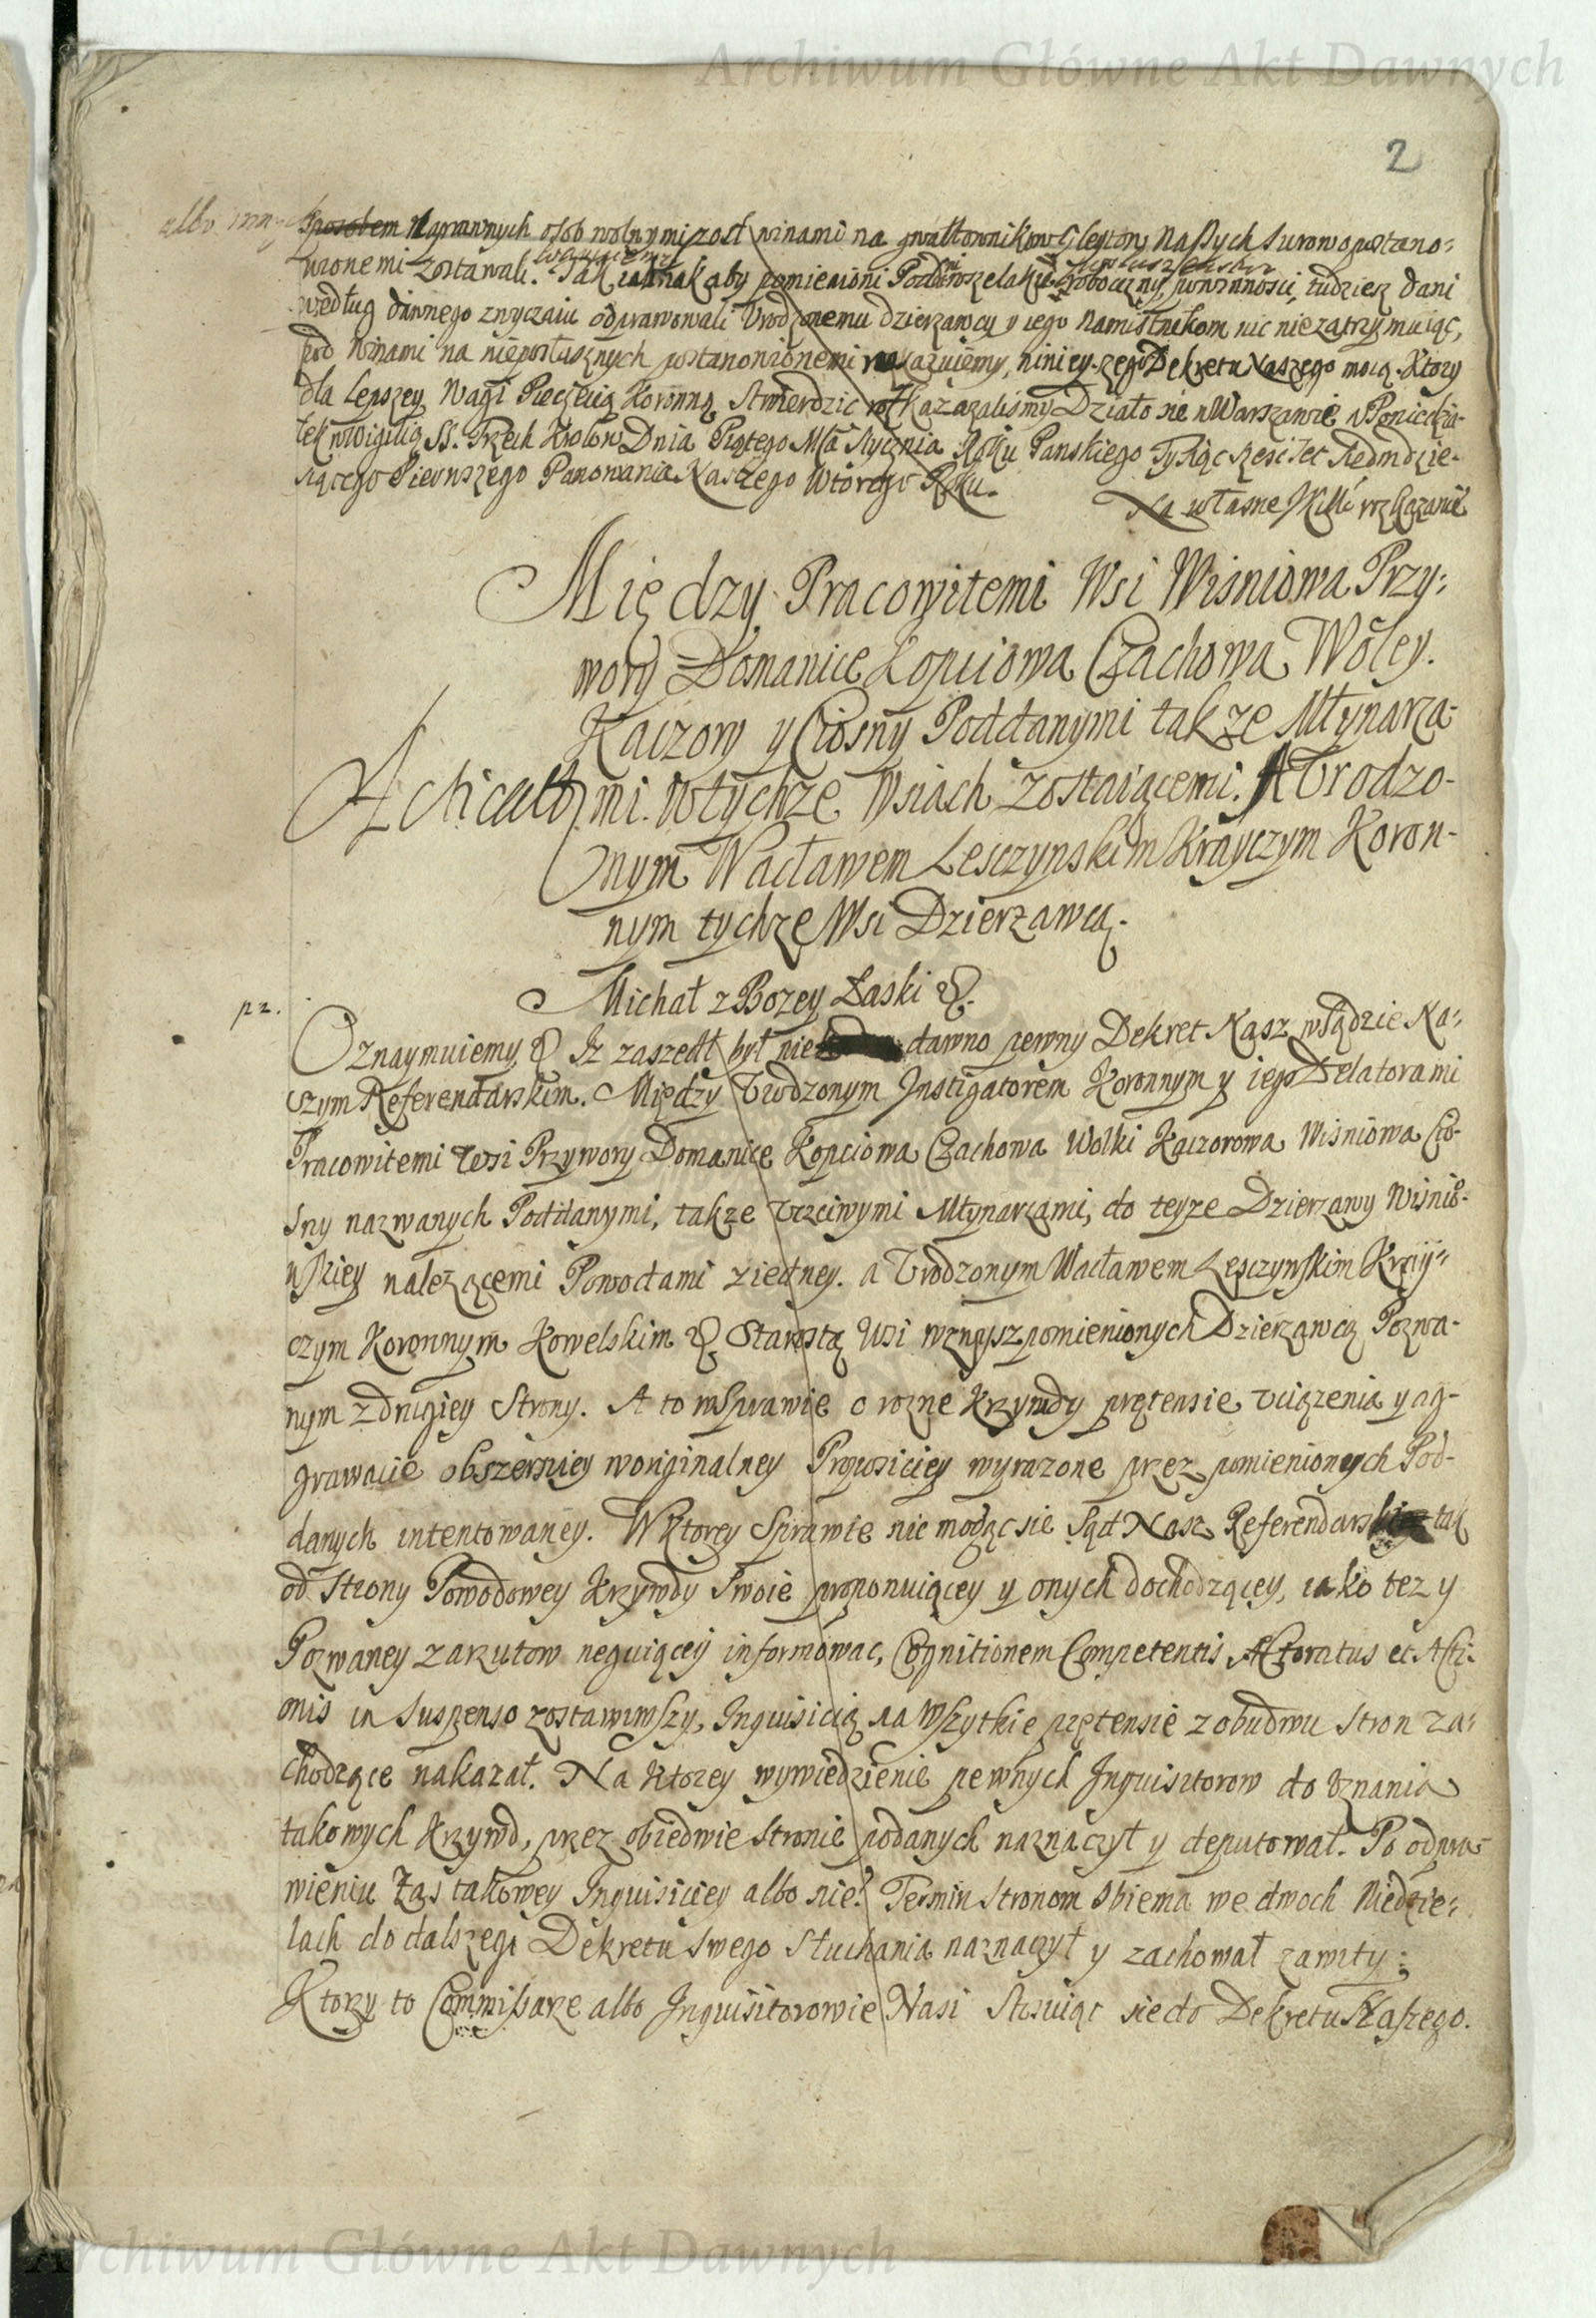 Archiwum Główne Akt Dawnych
2
albo inn
sposobem Uprawnych osob wolnymi zost winami na gwałtownikow Gleytow Naszych surowo postano:
wionemi zostawali. Tak iednak aby pomienioni Poddani wszelakie robocizny, powinności, tudziesz dani
według dawnego zwyczaiu odprawowali Urodzonemu dzierzawcy y iego Namiestnikom nic nie zatrzymuiąc,
pod winami na nieposłusznych postanowionemi nakazuiemy, ninieyszego Dekretu Naszego mocą. Ktory
dla Lepszey Wagi Pieczęcią Koronną Stwierdzic rozkazalismy Działo się w Warszawie w Poniedzia-
łek w Wigilią SS. Trzech Krolow Dnia Piątego Mca Stycznia Roku Panskiego Tysiąc szescset Siedmdzie-
siącego Pierwszego Panowania Naszego Wtorego Roku.
Na własne JKMci rozkazanie
Między Pracowitemi Wsi Wisniowa Przy:
wory Domanice Kopciowa Czachowa Woley.
Kaczory y Ciosny Poddanymi takze Młynarza-
Acticatt mi. w tychze Wsiach zostaiącemi. A Urodzo-
nym Wacławem Lesczynskim Krayczym Koron-
nym tychze Wsi Dzierzawcą.
Michał z Bozey Łaski &.
pz.
Oznaymuiemy & Iz zaszedł był nie dawno pewny Dekret Nasz w Sądzie Na:
szym Referendarskim. Między Urodzonym Instigatorem Koronnym y iego Delatorami
Pracowitemi Wsi Przywory Domanice Kopciowa Czachowa Wolki Kaczorowa Wisniowa Cio-
sny nazwanych Poddanymi, takze Uczciwymi Młynarzami, do teyze Dzierzawy Wisnio-
wskiey nalezącemi Powodami z iedney. a Urodzonym Wacławem Lesczynskim Kray-
czym Koronnym Kowelskim & Starostą Wsi wzwysz pomienionych Dzierzawcą Pozwa-
nym z drugiey Strony. A to w Sprawie o rozne Krzywdy prętensie uciązenia y ag-
grawacie obszerniey w originalney Propositiey wyrazone przez pomienionych Pod-
danych intentowaney. W Ktorey Sprawie nie mogąc się Sąd Nasz Referendarski tak
od Strony Powodowey Krzywdy Swoie proponuiącey y onych dochodzącey, iako tez y
Pozwaney zarzutow neguiącey informowac, Cognitionem Competentis Actoratus et Acti-
onis in Suspenso zostawiwszy, Inquisicią na Wszytkie prętensie z obudwu Stron za:
chodzące nakazał. Na Ktorey wywiedzienie pewnych Inquisitorow do Uznania
takowych Krzywd, przez obiedwie Stronie podanych naznaczył y deputował. Po odpra-
wieniu zas takowey Inquisiciey albo nie: Termin Stronom Obiema we dwoch Niedzie-
lach do dalszego Dekretu Swego Słuchania naznaczył y zachował zawity:
Ktorzy to Commissarze albo Inquisitorowie Nasi Stosuiąc się do Dekretu Naszego.
Archiwum Główne Akt Dawnych